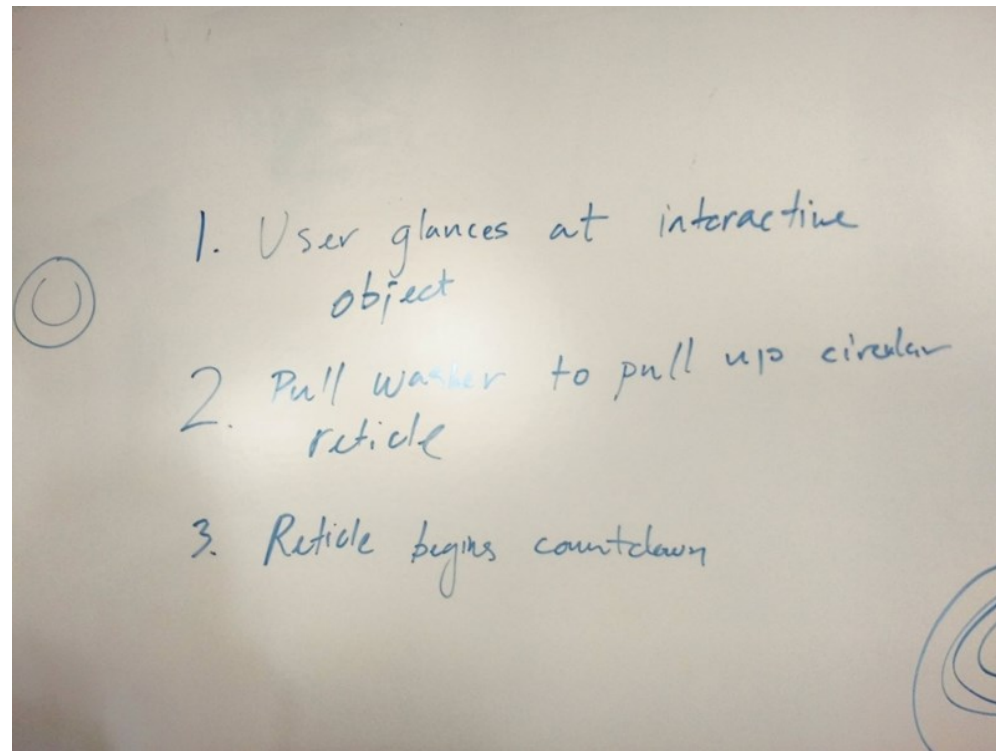 1. User glances at interactive
object
2. Pull washer to pull up circular
reticle
3. Reticle begins countdown